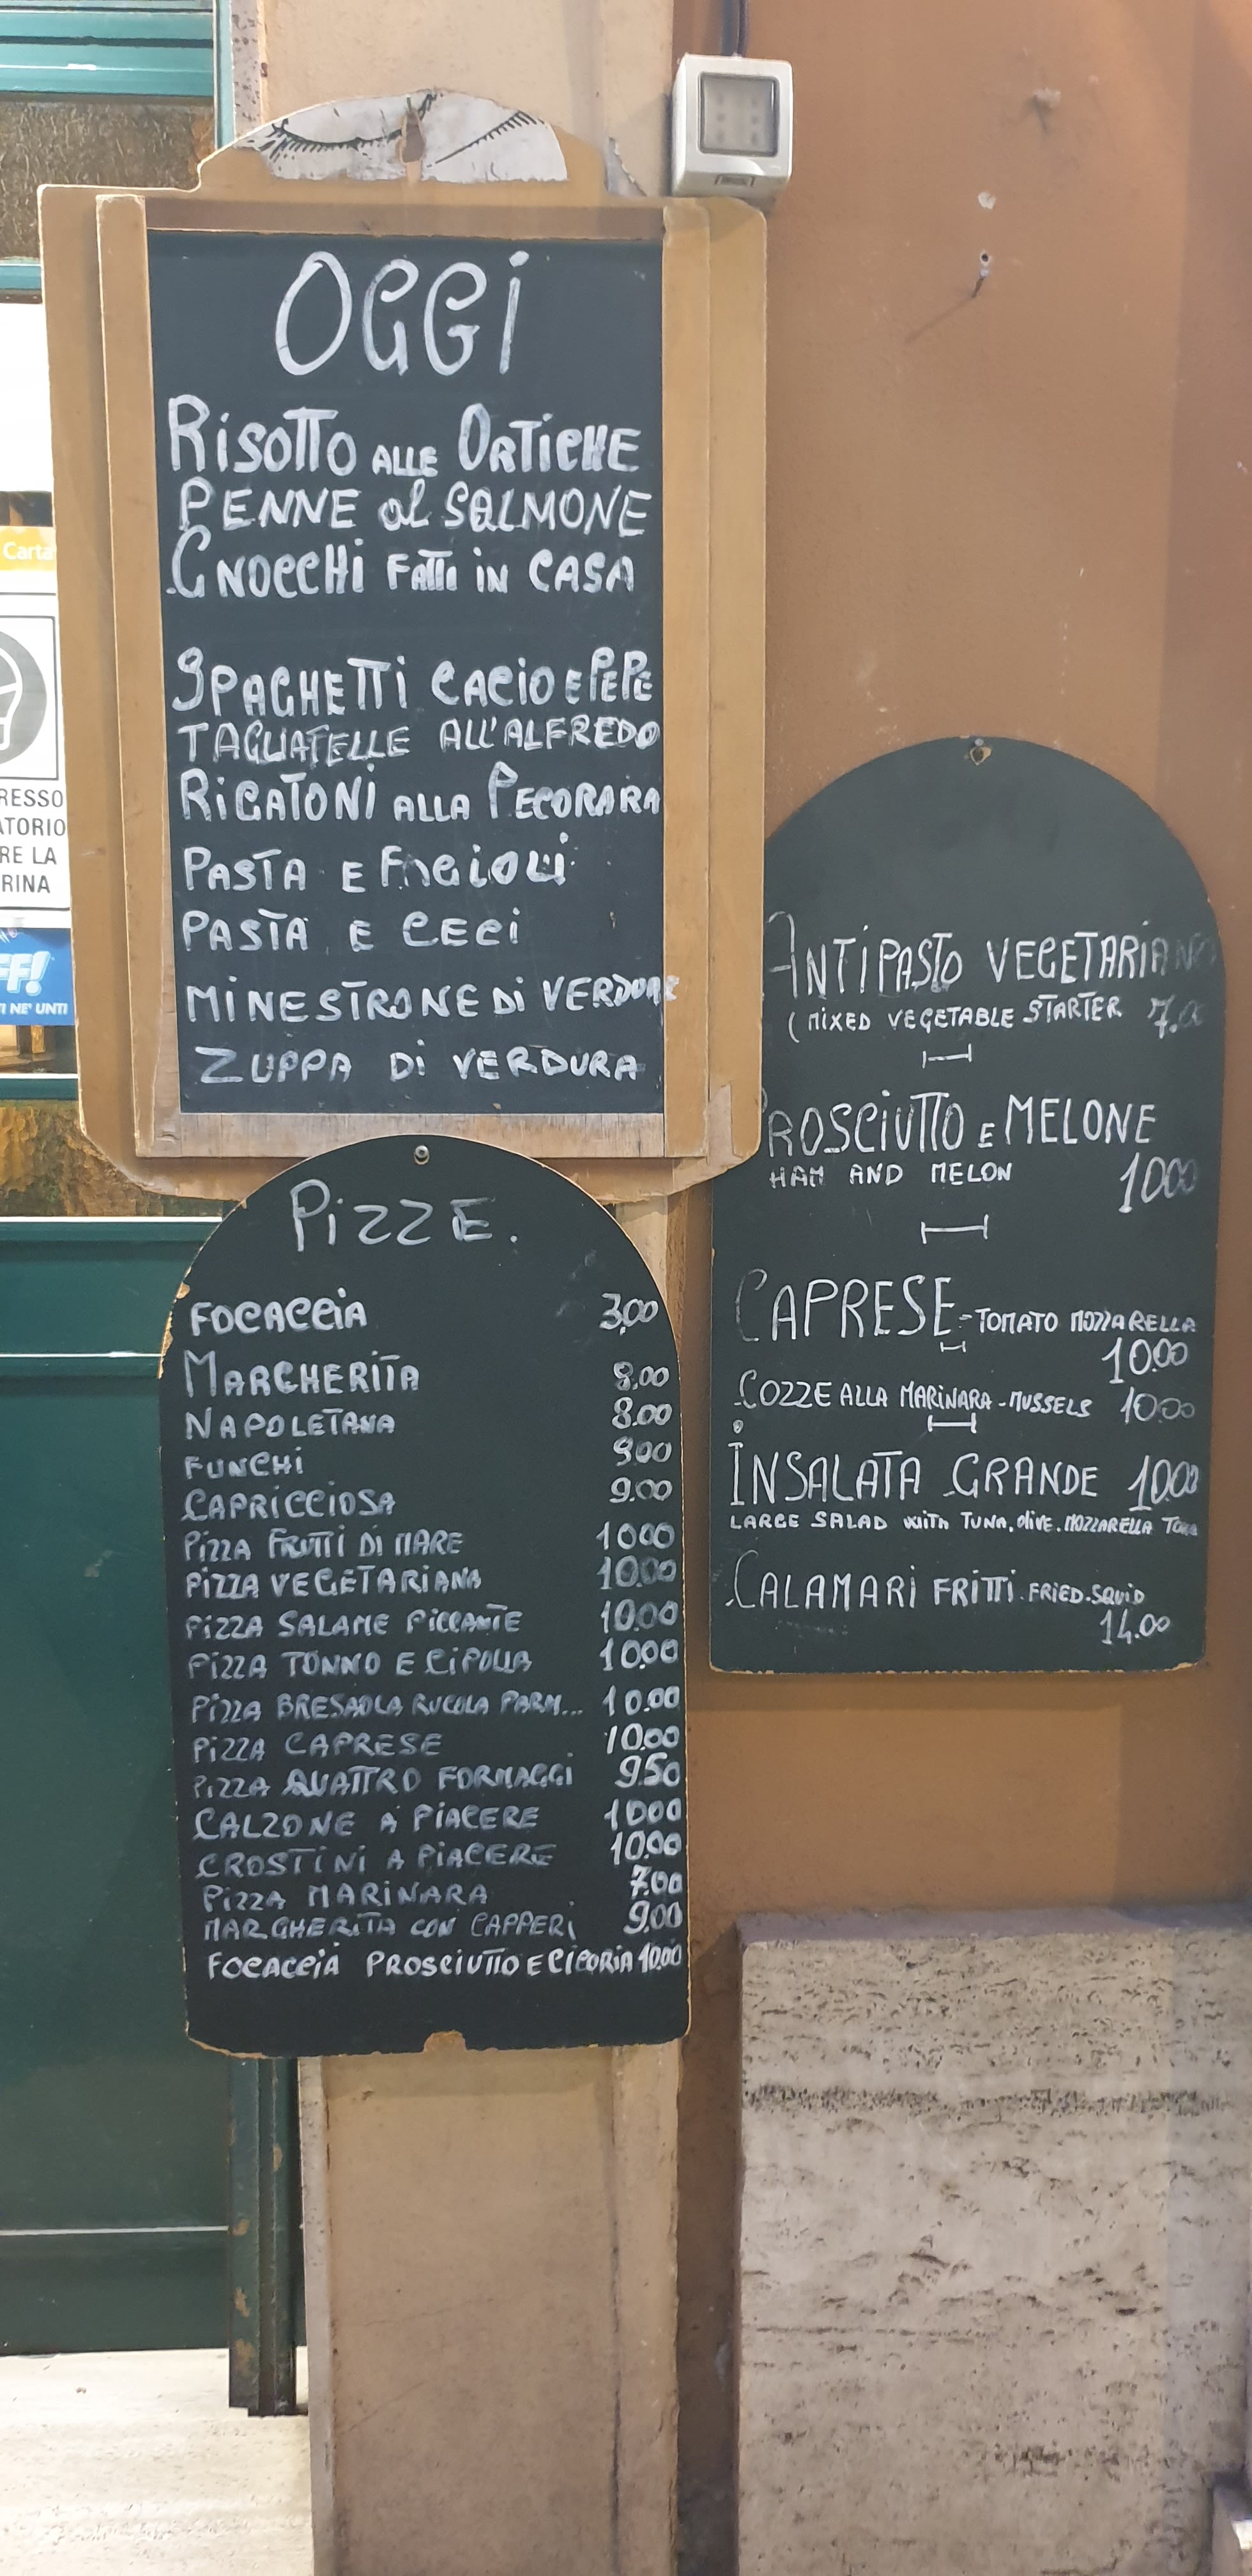 OGGi
RiSOTTO ALLE ORTiCHE
PENNE al SALMONE
GNOCCHi FATTi iN CASA
SPAGHETTi CACiO E PEPE
TAGLIATELLE ALL'ALFREDO
RiGATONi ALLA PECORARA
PASTA E FAGiOLi
PASTA E CECi
MiNESTRONE Di VERDURE
ZUPPA Di VERDURA
PiZZE.
FOCACCiA 3,00
MARGHERiTA 8.00
NAPOLETANA 8.00
FUNGHi 900
CAPRICCiOSA 9.00
PiZZA FRUTTi Di MARE 1000
PiZZA VEGETARiANA 10.00
PiZZA SALAME PiCCANTE 10.00
PiZZA TONNO E CiPOLLA 10.00
PiZZA BRESAOLA RUCOLA PARM... 10.00
PiZZA CAPRESE 10.00
PiZZA QUATTRO FORMAGGi 9.50
CALZONE A PiACERE 1000
CROSTiNi A PiACERE 10.00
PiZZA MARiNARA 7.00
MARGHERiTA CON CAPPERi 9.00
FOCACCiA PROSCiUTTO E CiCORiA 10.00
ANTiPASTO VEGETARiANO
( MiXED VEGETABLE STARTER 7.00
PROSCiUTTO E MELONE
HAM AND MELON 1000
CAPRESE - TOMATO MOZZARELLA
10.00
COZZE ALLA MARiNARA - MUSSELS 10.00
INSALATA GRANDE 10.00
LARGE SALAD WiTH TUNA, OliVE. MOZZARELLA
CALAMARi FRiTTi. FRiED. SQUiD
14.00
Carta
RESSO
ATORIO
RE LA
RINA
FF!
TI NE' UNTI